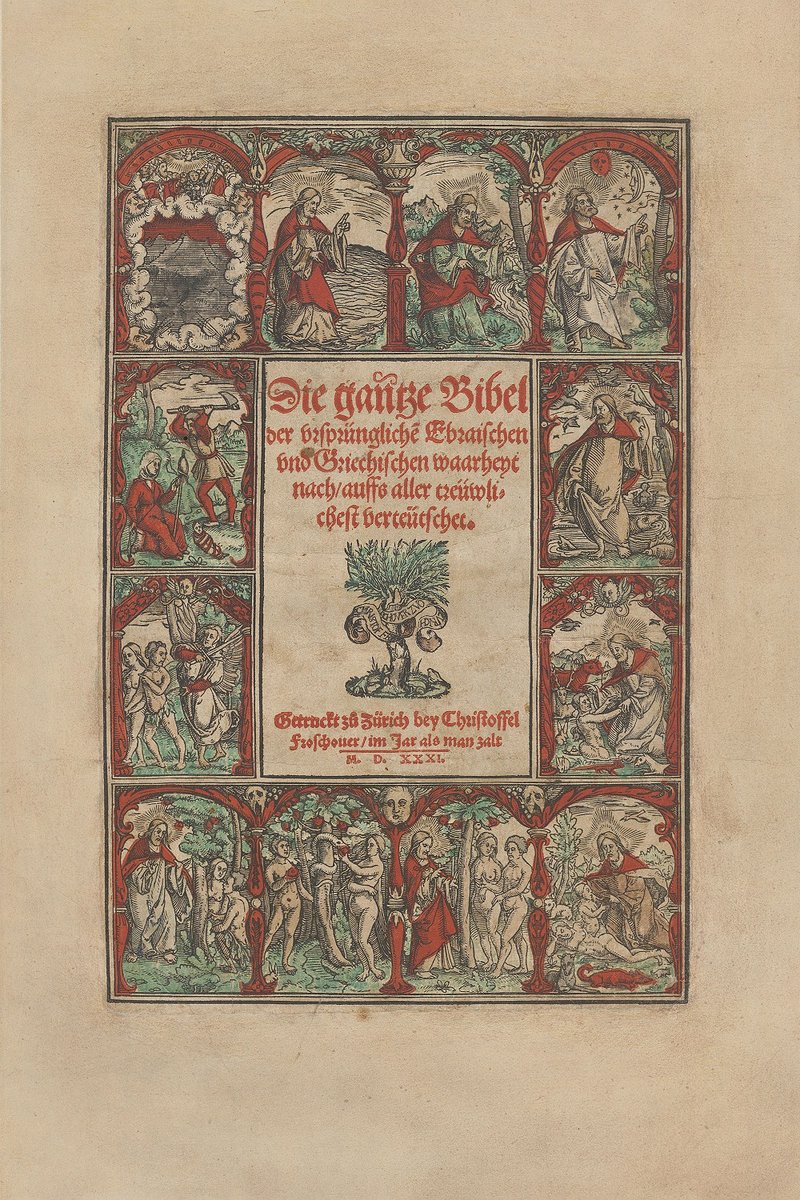 Die gañtze Bibel
der vrsprünglichẽ Ebraischen
vnd Griechischen waarheyt
nach/auffs aller treüwli-
chest verteütschet.
Getruckt zů Zürich bey Christoffel
Froschouer/im Jar als man zalt
M. D. XXXI.